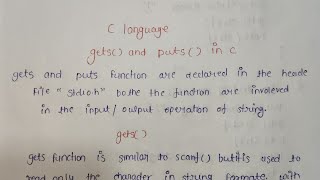 C language
gets() and puts() in C
gets and puts function are declared in the heade
File "stdio.h" bothe the function are involeved
in the input/output operation of string.
gets()
gets function is similar to scanf() but it is used to
read only the charader in string formate. with